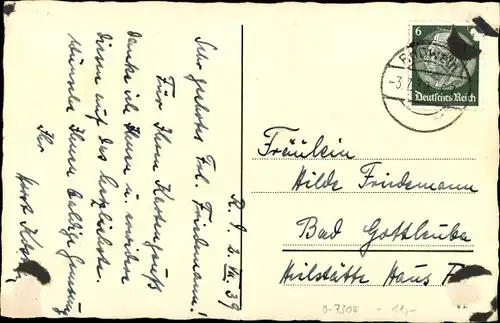 R., d. 2. VII. 39
Sehr geehrtes Frl. Friedemann!
Für Ihren Kartengruß
danke ich Ihnen u. erwidere
diesen auf das herzlichste.
wünsche Ihnen baldige Genesung
Ihr
Kurt
6
Deutsches Reich
-3.7.
Fräulein
Hilde Friedemann
Bad Gottleuba
Heilstätte Haus
D-7304 - 11,-